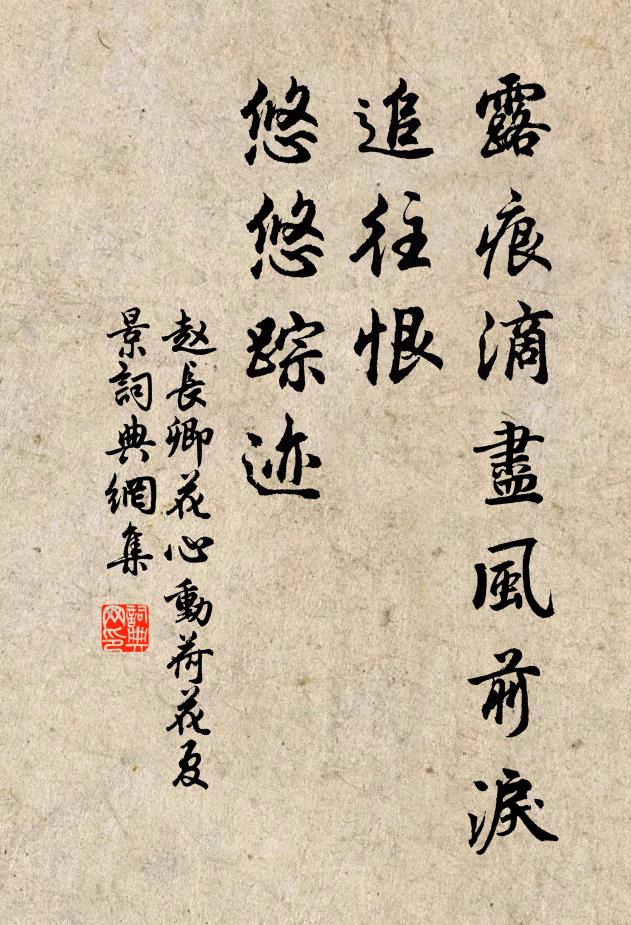 露痕滴盡風前淚
追往恨
悠悠踪迹
赵長卿花心動荷花夏
景詞典網集
詞典
网印